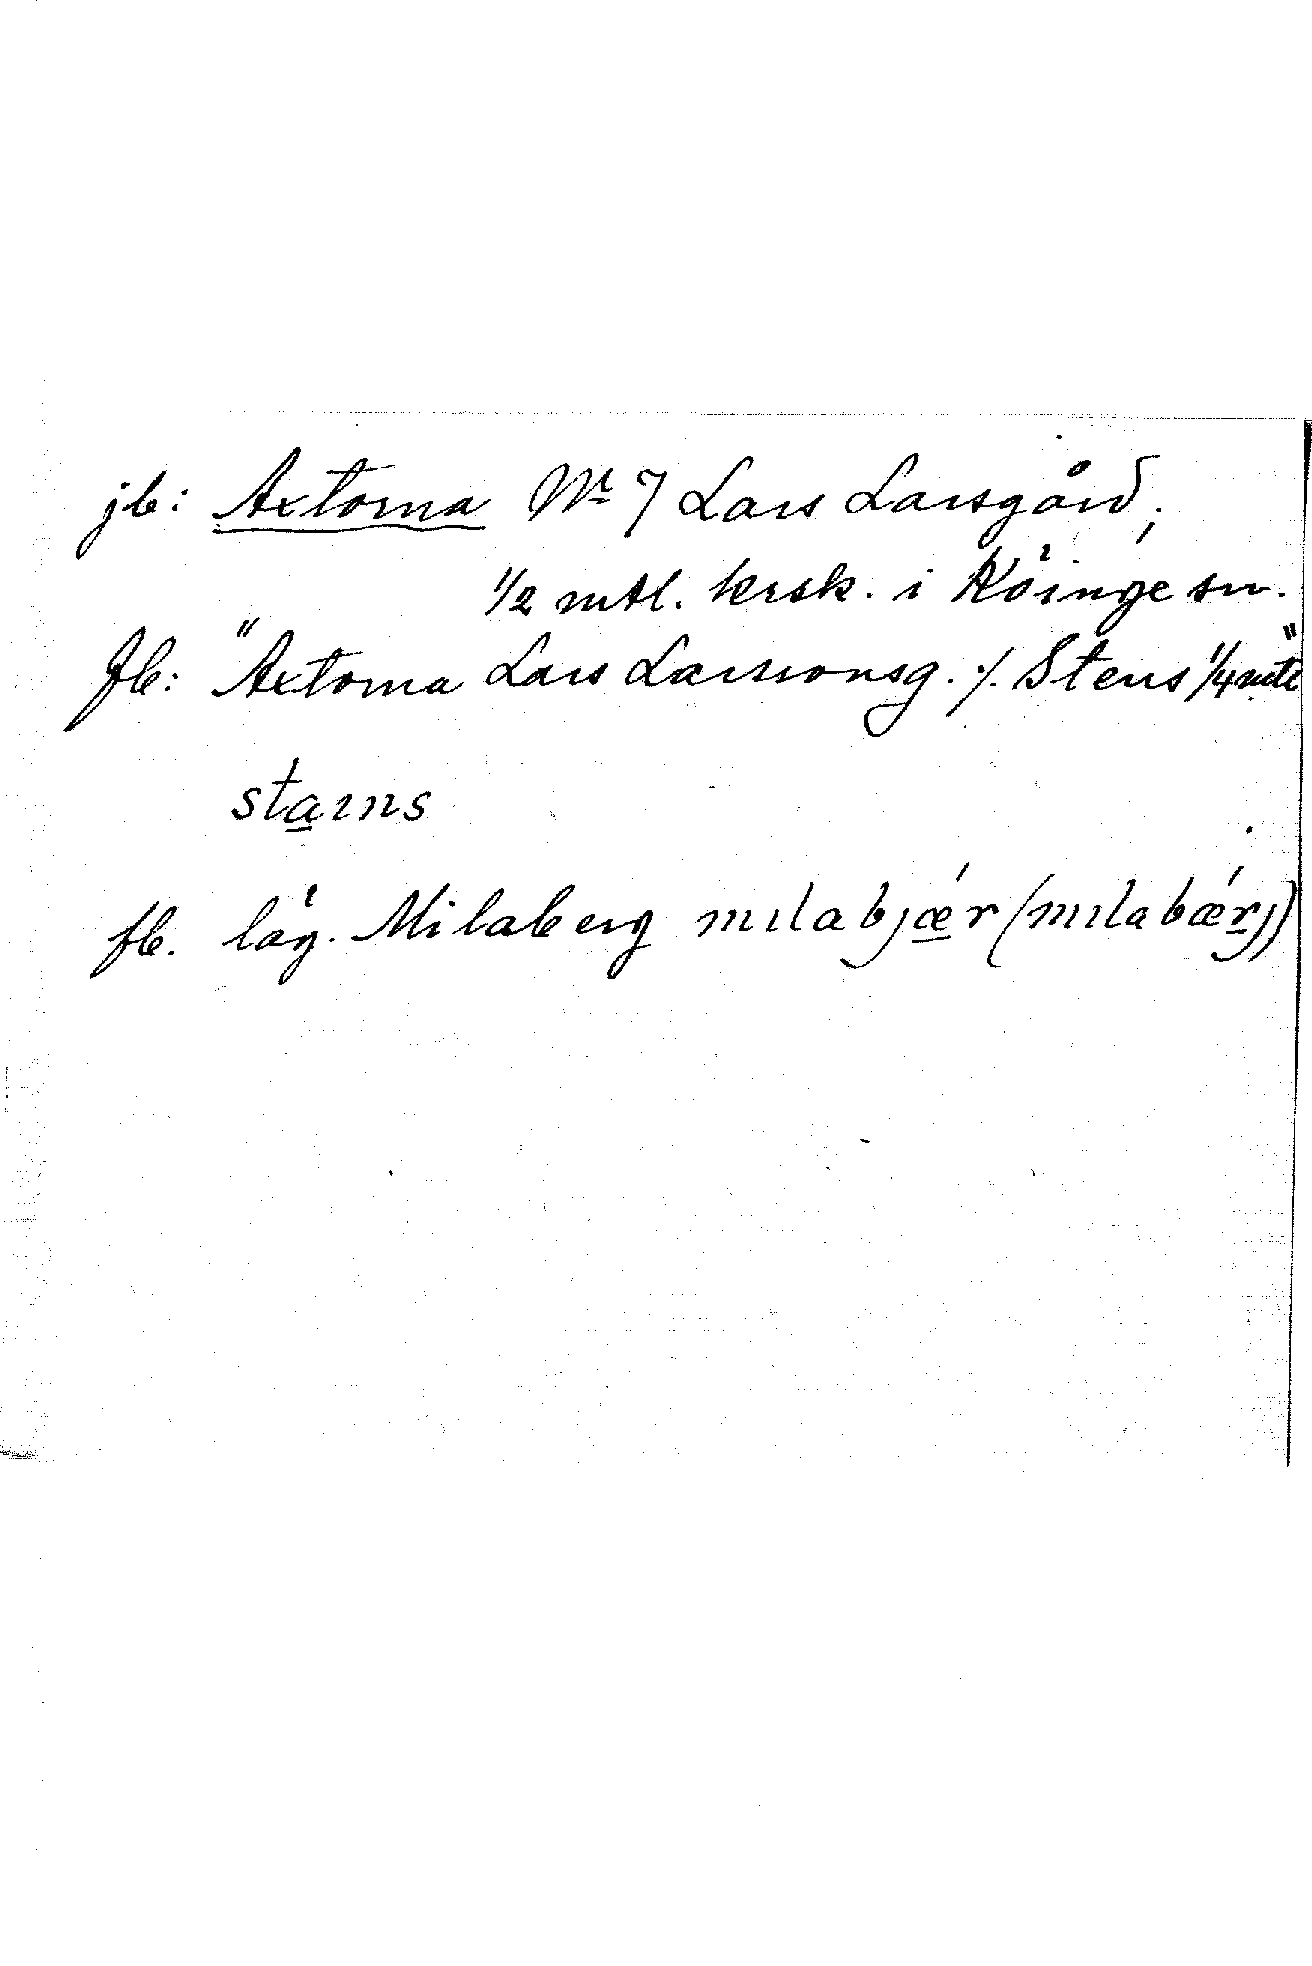 jb: Axtorna Nr 7 Lars Larsgård,
1/2 mtl. krsk. i Köinge sn.
fb: "Axtorna Lars Larssonsg. ./. Stens 1/4 mtl"
starns
fb. läg. Milaberg mılabjǽr (mılabǽrj)